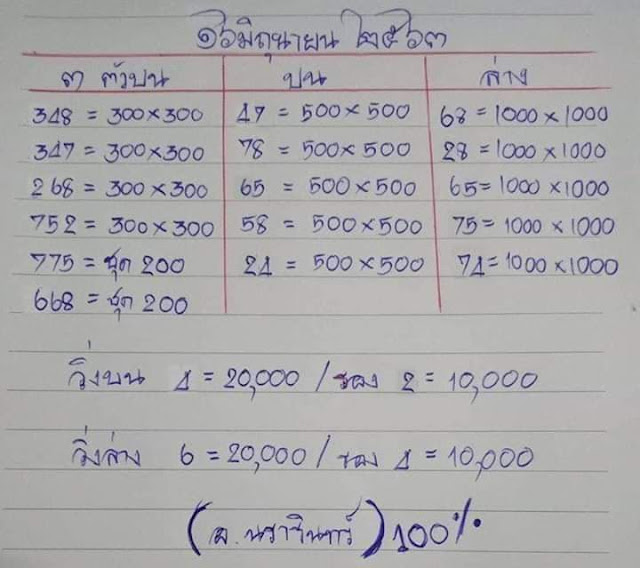 ๑๖ มิถุนายน ๒๕๖๓
๓ ตัวบน บน ล่าง
348 = 300×300 47 = 500×500 68 = 1000×1000
347 = 300×300 78 = 500×500 28 = 1000×1000
268 = 300×300 65 = 500×500 65 = 1000×1000
752 = 300×300 58 = 500×500 75 = 1000×1000
775 = ชุด 200 24 = 500×500 74 = 1000×1000
668 = ชุด 200
วิ่งบน 4 = 20,000 / รอง 2 = 10,000
วิ่งล่าง 6 = 20,000 / รอง 4 = 10,000
(อ. นราจินทร์) 100%